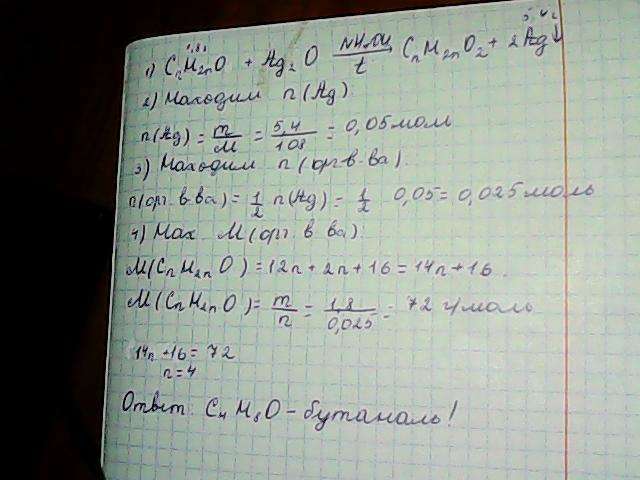 1,8г 5,4г
1) CnH2nO + Ag2O NH4OH t CnH2nO2 + 2Ag↓
2) Находим n(Ag):
n(Ag) = m/M = 5,4/108 = 0,05 моль
3) Находим n(орг.в-ва).
n(орг.в-ва) = 1/2 n(Ag) = 1/2 0,05 = 0,025 моль
4) Нах M(орг.в ва):
M(CnH2nO) = 12n + 2n + 16 = 14n + 16.
M(CnH2nO) = m/n = 1,8/0,025 = 72 г/моль
14n + 16 = 72
n = 4
Ответ: C4H8O – бутаналь!